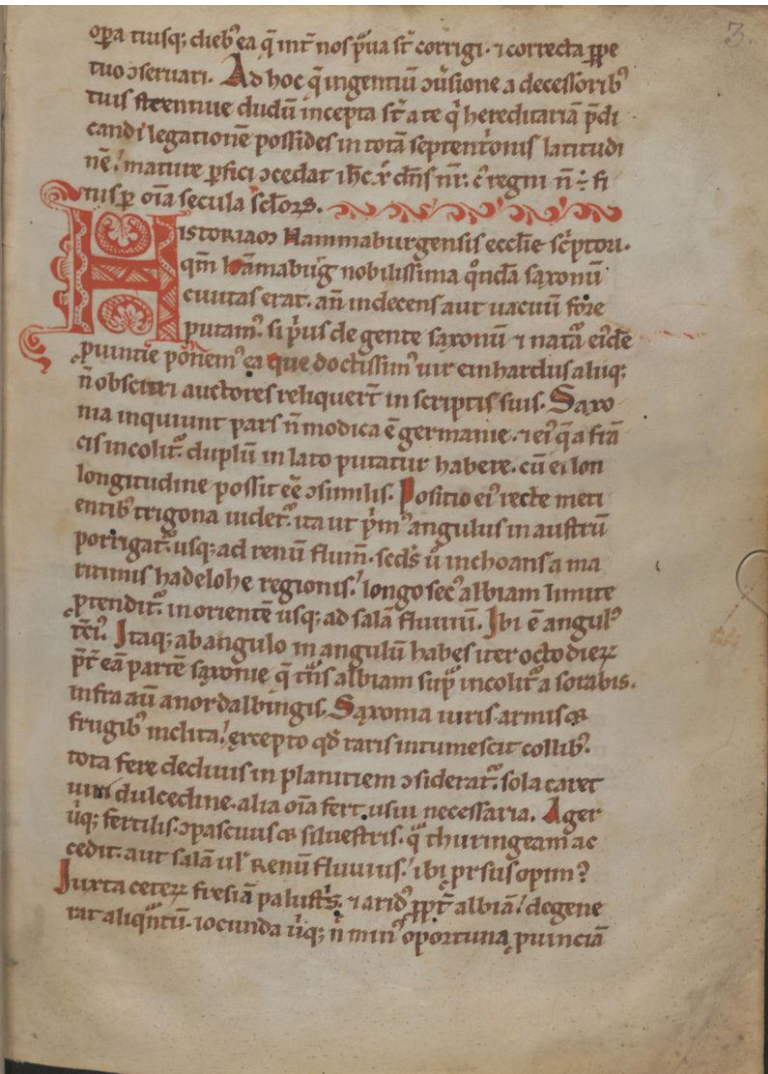 3.
opa tuisq; dieb᾽ ea q̄ int̄ nos p̄ua st̄ corrigi · ⁊ correcta ꝑpe
tuo ɔseruari. Ad hoc q̄ ingentiū ɔuͥsione a decessorib᾽
tuis strennue dudū incepta st̄ a te qͥ hereditariā p̄di
candi legationē possides in totā septentͥonis latitudi
nē. mature ꝑfici ɔcedat ih̄c xp̄ dn̄s nr̄: cͥ regni n̄ ÷ fi
nis p̄ oīa secula sc̄lorꝝ.
Historiaꝝ Hammaburgensis eccl̄ie sc̄ptori·
qm̄ hāmabūg nobilissima qͦndā sąxonū
ciuitas erat. añ indecens aut uacuū fore
putam᾽. si pͥus de gente sąxonū ⁊ natͣā ei᾽dē
ꝓuintie pōnem᾽ ea que doctissim᾽ uir einhardus aliiq;
n̄ obscuri auctores reliquert̄ in scriptis suis. Saxo
nia inquiunt pars n̄ modica ē germanie. ⁊ ei᾽ q̄ a frā
cis incolit᾽ duplū in lato putatur habere. cū ei lon
longitudine possit eē ɔsimilis. Positio ei᾽ recte meti
entib᾽ trigona uidet᾽. ita ut pͥm᾽ angulus in austrū
porrigat᾽ usq; ad renū flum̄. sc̄ds ū inchoans a ma
ritimis hadelohe regionis. longo sec᾽ albiam limite
ꝓtendit᾽ in orientē usq; ad salā fluuiū. Ibi ē angul᾽
t̄ci᾽. Itaq; ab angulo in angulū habęs iter octo dieꝝ
p̄t̄ eā partē sąxonie q̄ tͣns albiam supͥ incolit᾽ a sorabis.
infra aū a nordalbingis. Sąxonia uiris armis ⁊
frugib᾽ inclita. ęxcepto qđ raris intumescit collib᾽.
tota fere decliuis in planitiem ɔsiderat᾽. sola caret
uini dulcedine. alia oīa fert usui necessaria. Ager
ūq; fertilis. ɔpascuus ⁊ siluestris. qͣ thuringeam ac
cedit. aut salā ul᾽ Renū fluuius. ibi ꝓrsus opim᾽
Iuxta ceteꝝ fresiā palustͥs. ⁊ arid᾽ ꝓpt̄ albiā. degene
rat aliqͣntū. iocunda ūq; n̄ min᾽ oportuna ꝓuinciā